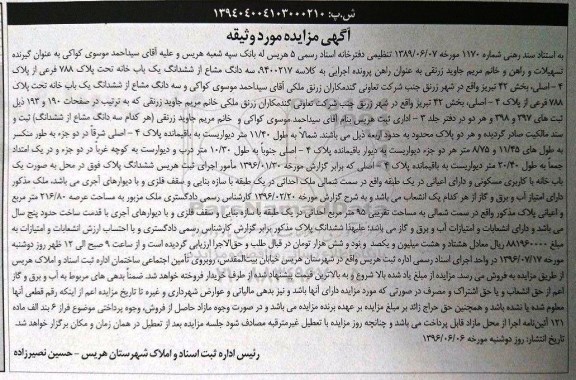 ش.ب: ۱۳۹۴۰۴۰۰۴۱۰۳۰۰۰۲۱۰
آگهی مزایده مورد وثیقه
به استناد سند رهنی شماره ۱۱۷۰ مورخه ۱۳۸۹/۰۶/۰۷ تنظیمی دفترخانه اسناد رسمی ۵ هریس له بانک سپه شعبه هریس و علیه آقای سیداحمد موسوی کواکی به عنوان گیرنده
تسهیلات و راهن و خانم مریم جاوید زرنقی به عنوان راهن پرونده اجرایی به کلاسه ۹۴۰۰۲۱۷، سه دانگ مشاع از ششدانگ یک باب خانه تحت پلاک ۷۸۸ فرعی از پلاک
۴ - اصلی، بخش ۴۲ تبریز واقع در شهر زرنق جنب شرکت تعاونی گندمکاران زرنق ملکی آقای سیداحمد موسوی کواکی و سه دانگ مشاع از ششدانگ یک باب خانه تحت پلاک
۷۸۸ فرعی از پلاک ۴ - اصلی، بخش ۴۲ تبریز واقع در شهر زرنق جنب شرکت تعاونی گندمکاران زرنق ملکی خانم مریم جاوید زرنقی که به ترتیب در صفحات ۱۹۰ و ۱۹۳ ذیل
ثبت های ۳۹۷ و ۳۹۸ و هر دو در دفتر جلد ۳ - اداری ثبت هریس بنام آقای سیداحمد موسوی کواکی و خانم مریم جاوید زرنقی (هر کدام سه دانگ مشاع از ششدانگ) ثبت و
سند مالکیت صادر گردیده و هر دو پلاک محدود به حدود اربعه ذیل می باشند. شمالاً به طول ۱۱/۴۰ متر دیواریست به باقیمانده پلاک ۴ - اصلی شرقاً در دو جزء به طور منکسر
به طول های ۱۱/۴۵ و ۸/۷۵ متر هر دو جزء دیواریست به دیوار باقیمانده پلاک ۴ - اصلی جنوباً به طول ۱۰/۳۰ متر درب و دیواریست به کوچه غرباً در دو جزء و در یک امتداد
جمعاً به طول ۲۰/۴۰ متر دیواریست به باقیمانده پلاک ۴ - اصلی که برابر گزارش مورخه ۱۳۹۶/۰۱/۳۰ مأمور اجرای ثبت هریس ششدانگ پلاک فوق در محل به صورت یک
باب خانه با کاربری مسکونی و دارای اعیانی در یک طبقه واقع در سمت شمالی ملک احداثی در یک طبقه با سازه بنایی و سقف فلزی و با دیوارهای آجری می باشد، ملک مذکور
دارای امتیاز آب و برق و گاز از هر کدام یک انشعاب می باشد و به شرح گزارش مورخه ۱۳۹۶/۰۲/۲۰ کارشناس رسمی دادگستری ملک مزبور به مساحت عرصه ۲۱۶/۸۰ متر مربع
و اعیانی پلاک مذکور واقع در سمت شمالی به مساحت تقریبی ۹۵ متر مربع احداثی در یک طبقه با سازه بنایی و سقف فلزی و با دیوارهای آجری با قدمت ساخت حدود پنج سال
می باشد و دارای انشعابات و امتیازات آب و برق و گاز می باشد؛ علیهذا ششدانگ پلاک مذکور برابر گزارش کارشناس رسمی دادگستری و با احتساب ارزش انشعابات و امتیازات به
مبلغ ۸۸۱۹۶۰۰۰۰ ریال معادل هشتاد و هشت میلیون و یکصد و نود و شش هزار تومان در قبال طلب و حق الاجرا ارزیابی گردیده است و از ساعت ۹ صبح الی ۱۲ ظهر روز دوشنبه
مورخه ۱۳۹۶/۰۷/۱۷ در واحد اجرای اسناد رسمی اداره ثبت هریس واقع در شهرستان هریس خیابان بیت المقدس، روبروی تأمین اجتماعی ساختمان اداره ثبت اسناد و املاک هریس
از طریق مزایده به فروش می رسد. مزایده از مبلغ یاد شده بالا شروع و به بالاترین قیمت پیشنهاد شده از طرف خریدار فروخته خواهد شد. ضمناً بدهی های مربوط به آب و برق و گاز
اعم از حق انشعاب و یا حق اشتراک و مصرف در صورتی که مورد مزایده دارای آنها باشد و نیز بدهی مالیاتی و عوارض شهرداری و غیره تا تاریخ مزایده اعم از اینکه رقم قطعی آنها
معلوم شده یا نشده باشد و همچنین حق حراج زائد بر مبلغ مزایده بر عهده برنده مزایده می باشد و در صورت وجوه مازاد حاصل از فروش، وجوه پرداختی موضوع فراز ۶ بند الف ماده
۱۲۱ آئین نامه اجرا از محل مازاد قابل پرداخت می باشد و چنانچه روز مزایده با تعطیل غیرمترقبه مصادف شود جلسه مزایده بعد از تعطیل در همان زمان و مکان برگزار خواهد شد.
تاریخ انتشار: روز دوشنبه مورخه ۱۳۹۶/۰۶/۰۶
رئیس اداره ثبت اسناد و املاک شهرستان هریس - حسین نصیرزاده